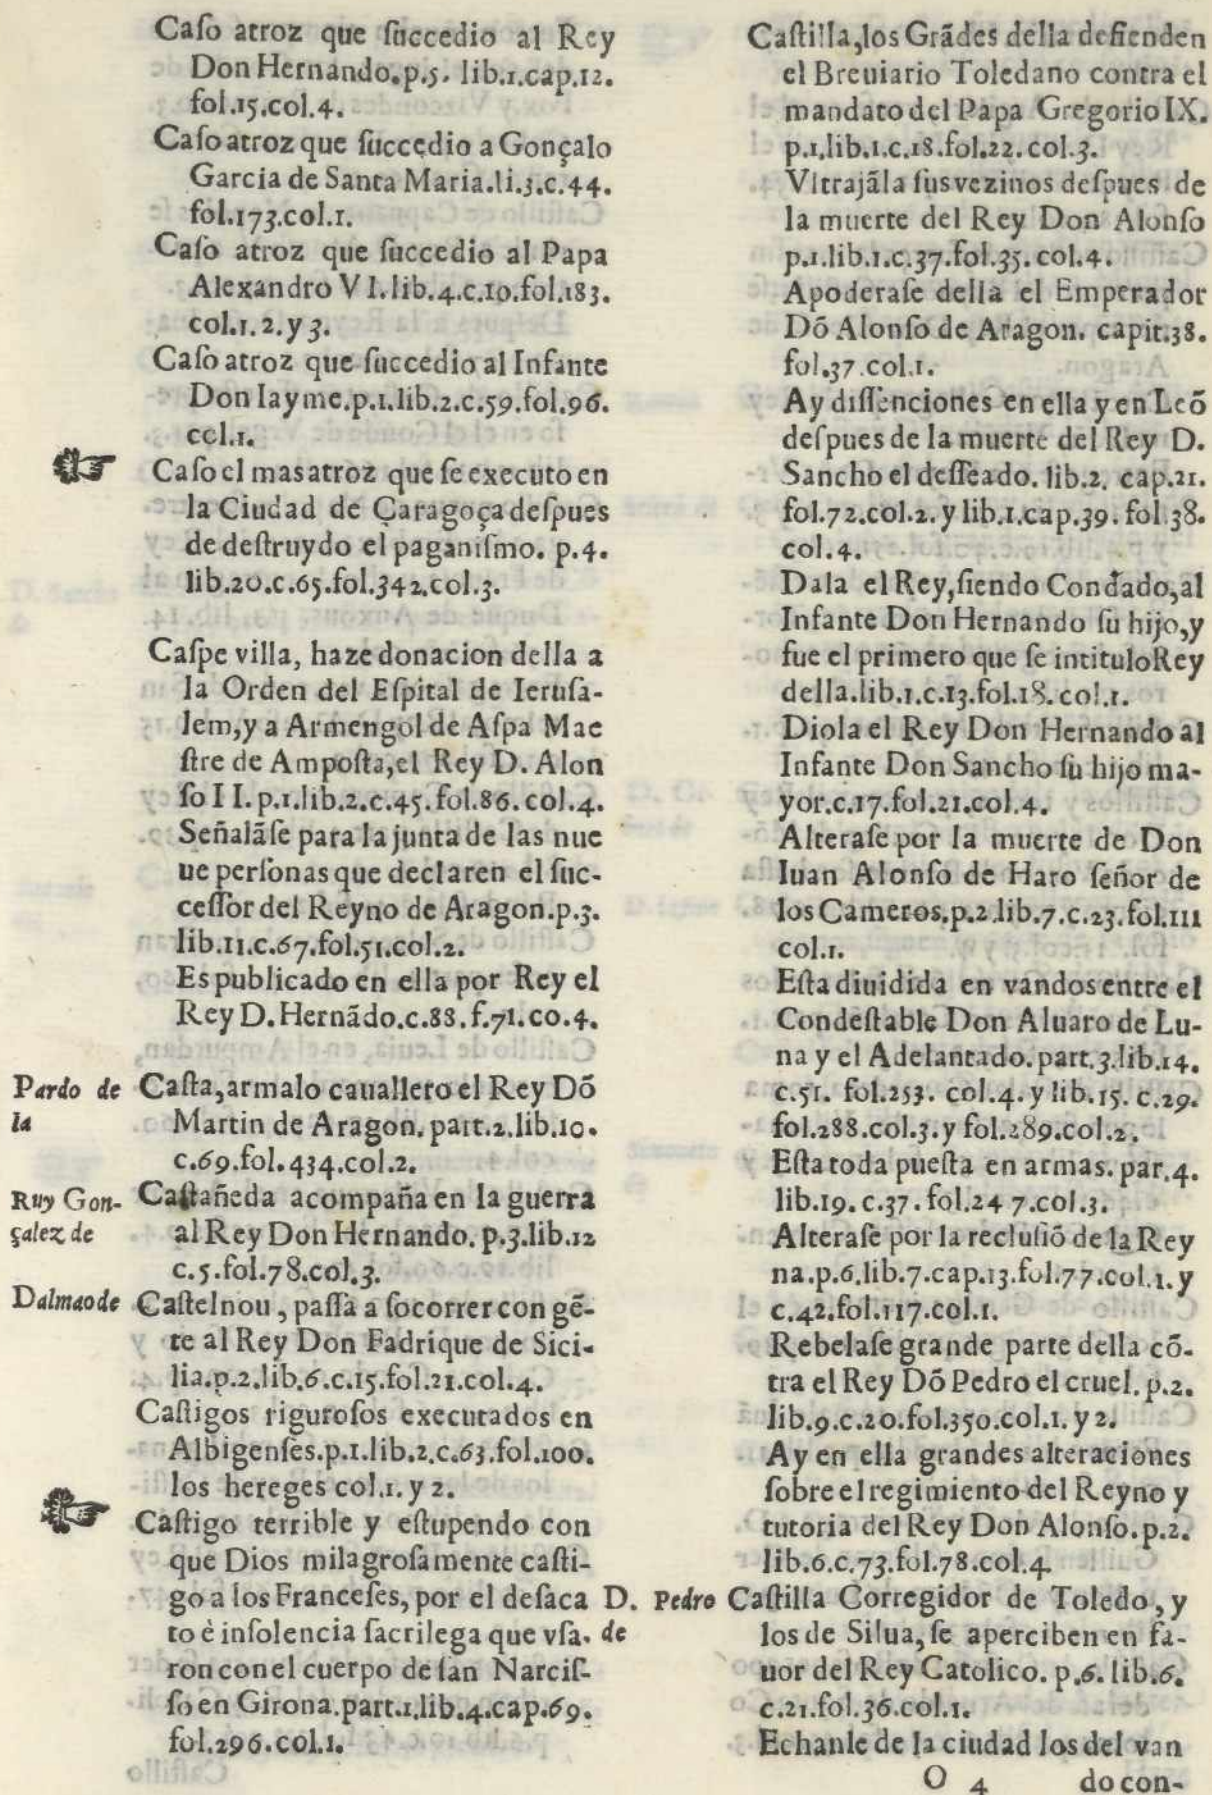 Caſo atroz que ſuccedio al Rey
Don Hernando.p.5. lib.1.cap.12.
fol.15.col.4.
Caſo atroz que ſuccedio a Gonçalo
Garcia de Santa Maria.li.3.c.44.
fol.173.col.1.
Caſo atroz que ſuccedio al Papa
Alexandro VI.lib.4.c.10.fol.183.
col.1.2.y 3.
Caſo atroz que ſuccedio al Infante
Don Iayme.p.1.lib.2.c.59.fol.96.
col.1.
Caſo el mas atroz que ſe executo en
la Ciudad de Çaragoça deſpues
de deſtruydo el paganiſmo. p.4.
lib.20.c.65.fol.342.col.3.
Caſpe villa, haze donacion della a
la Orden del Eſpital de Ieruſa-
lem,y a Armengol de Aſpa Mae
ſtre de Ampoſta,el Rey D. Alon
ſo II.p.1.lib.2.c.45.fol.86.col.4.
Señalãſe para la junta de las nue
ue perſonas que declaren el ſuc-
ceſſor del Reyno de Aragon.p.3.
lib.11.c.67.fol.51.col.2.
Es publicado en ella por Rey el
Rey D.Hernãdo.c.88.f.71.co.4.
Pardo de la Caſta,armalo cauallero el Rey Dõ
Martin de Aragon. part.2.lib.10.
c.69.fol.434.col.2.
Ruy Gon-çalez de Caſtañeda acompaña en la guerra
al Rey Don Hernando. p.3.lib.12
c.5.fol.78.col.3.
Dalmao de Caſtelnou, paſſa a ſocorrer con gẽ-
te al Rey Don Fadrique de Sici-
lia.p.2.lib.6.c.15.fol.21.col.4.
Caſtigos riguroſos executados en
Albigenſes.p.1.lib.2.c.63.fol.100.
los hereges col.1. y 2.
Caſtigo terrible y eſtupendo con
que Dios milagroſamente caſti-
go a los Franceſes, por el deſaca
to è inſolencia ſacrilega que vſa-
ron con el cuerpo de ſan Narciſ-
ſo en Girona.part.1.lib.4.cap.69.
fol.296.col.1.
Caſtilla,los Grãdes della defienden
el Breuiario Toledano contra el
mandato del Papa Gregorio IX.
p.1.lib.1.c.18.fol.22.col.3.
Vltrajãla ſus vezinos deſpues de
la muerte del Rey Don Alonſo
p.1.lib.1.c.37.fol.35.col.4.
Apoderaſe della el Emperador
Dõ Alonſo de Aragon. capit.38.
fol.37.col.1.
Ay diſſenciones en ella y en Leõ
deſpues de la muerte del Rey D.
Sancho el deſſeado. lib.2. cap.21.
fol.72.col.2. y lib.1.cap.39.fol.38.
col.4.
Dala el Rey,ſiendo Condado,al
Infante Don Hernando ſu hijo,y
fue el primero que ſe intitulo Rey
della.lib.1.c.13.fol.18.col.1.
Diola el Rey Don Hernando al
Infante Don Sancho ſu hijo ma-
yor.c.17.fol.21.col.4.
Alteraſe por la muerte de Don
Iuan Alonſo de Haro ſeñor de
los Cameros.p.2.lib.7.c.23.fol.111
col.1.
Eſta diuidida en vandos entre el
Condeſtable Don Aluaro de Lu-
na y el Adelantado. part.3.lib.14.
c.51. fol.253. col.4. y lib.15. c.29.
fol.288.col.3.y fol.289.col.2.
Eſta toda pueſta en armas. par.4.
lib.19.c.37.fol.247.col.3.
Alteraſe por la recluſiõ de la Rey
na.p.6.lib.7.cap.13.fol.77.col.1.y
c.42.fol.117.col.1.
Rebelaſe grande parte della cõ-
tra el Rey Dõ Pedro el cruel. p.2.
lib.9.c.20.fol.350.col.1. y 2.
Ay en ella grandes alteraciones
ſobre el regimiento del Reyno y
tutoria del Rey Don Alonſo.p.2.
lib.6.c.73.fol.78.col.4
D. Pedro de Caſtilla Corregidor de Toledo, y
los de Silua, ſe aperciben en fa-
uor del Rey Catolico. p.6. lib.6.
c.21.fol.36.col.1.
Echanle de la ciudad los del van
O 4 do con-